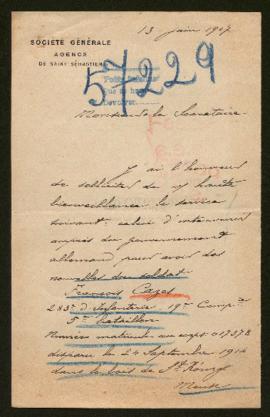 13 juin 1917
SOCIÉTÉ GÉNÉRALE
AGENCE
DE SAINT SÉBASTIEN
57229
Monsieur le Secretaire
J'ai l'honneur
de solliciter de v/ haute
bienveillance le service
suivant: celui d'intervenir
auprès du gouvernement
allemand pour avoir des
nouvelles du soldat
François Cazes
283e d'Infanterie 19e Compie
5e bataillon
Numéro matricule au corps 017378
disparu le 24 Septembre 1914
dans le bois de St Rémy
Meuse